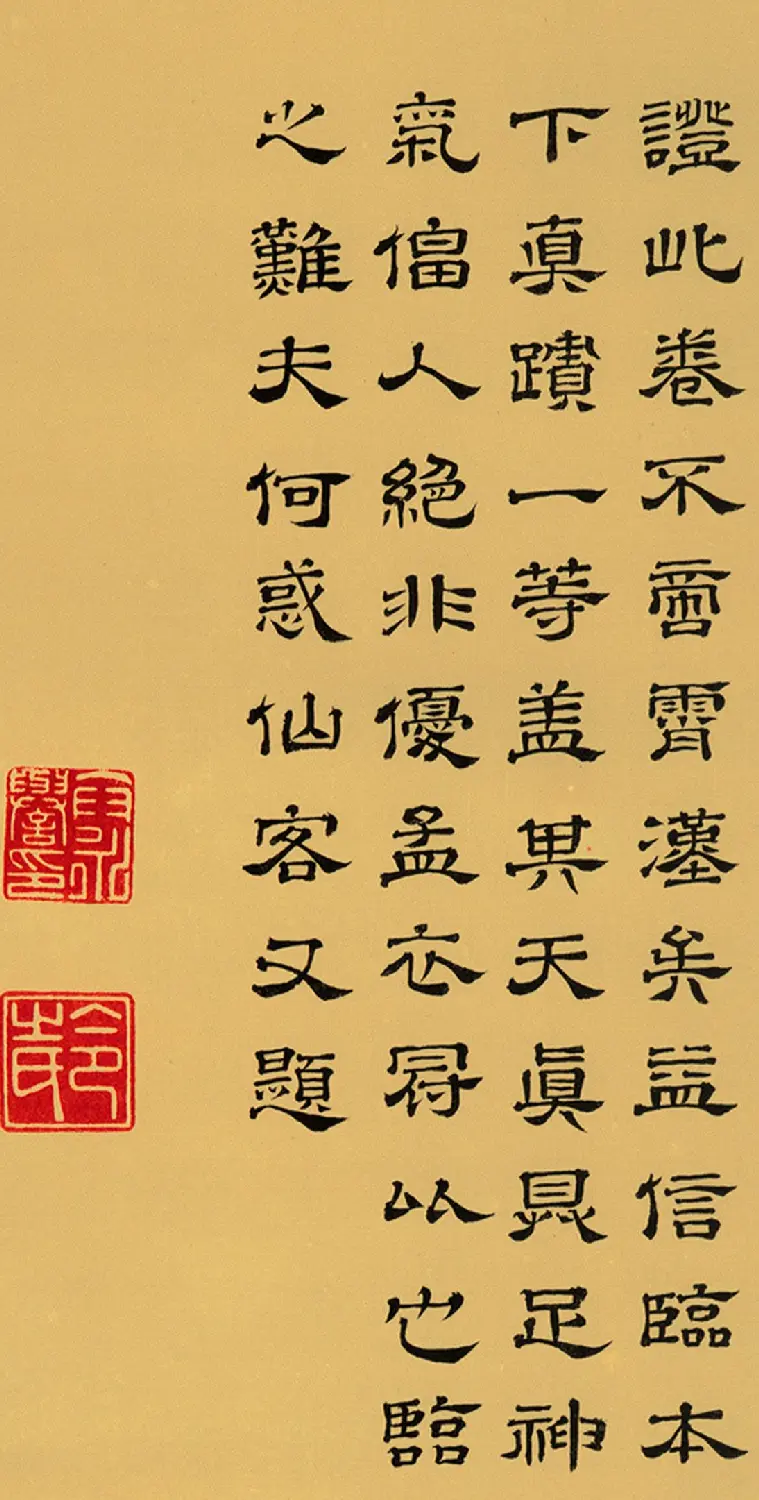 證此卷不啻霄漢矣益信臨本
下真蹟一等盖其天眞具足神
氣偪人絕非優孟衣冠以也臨
之難夫何惑仙客又題